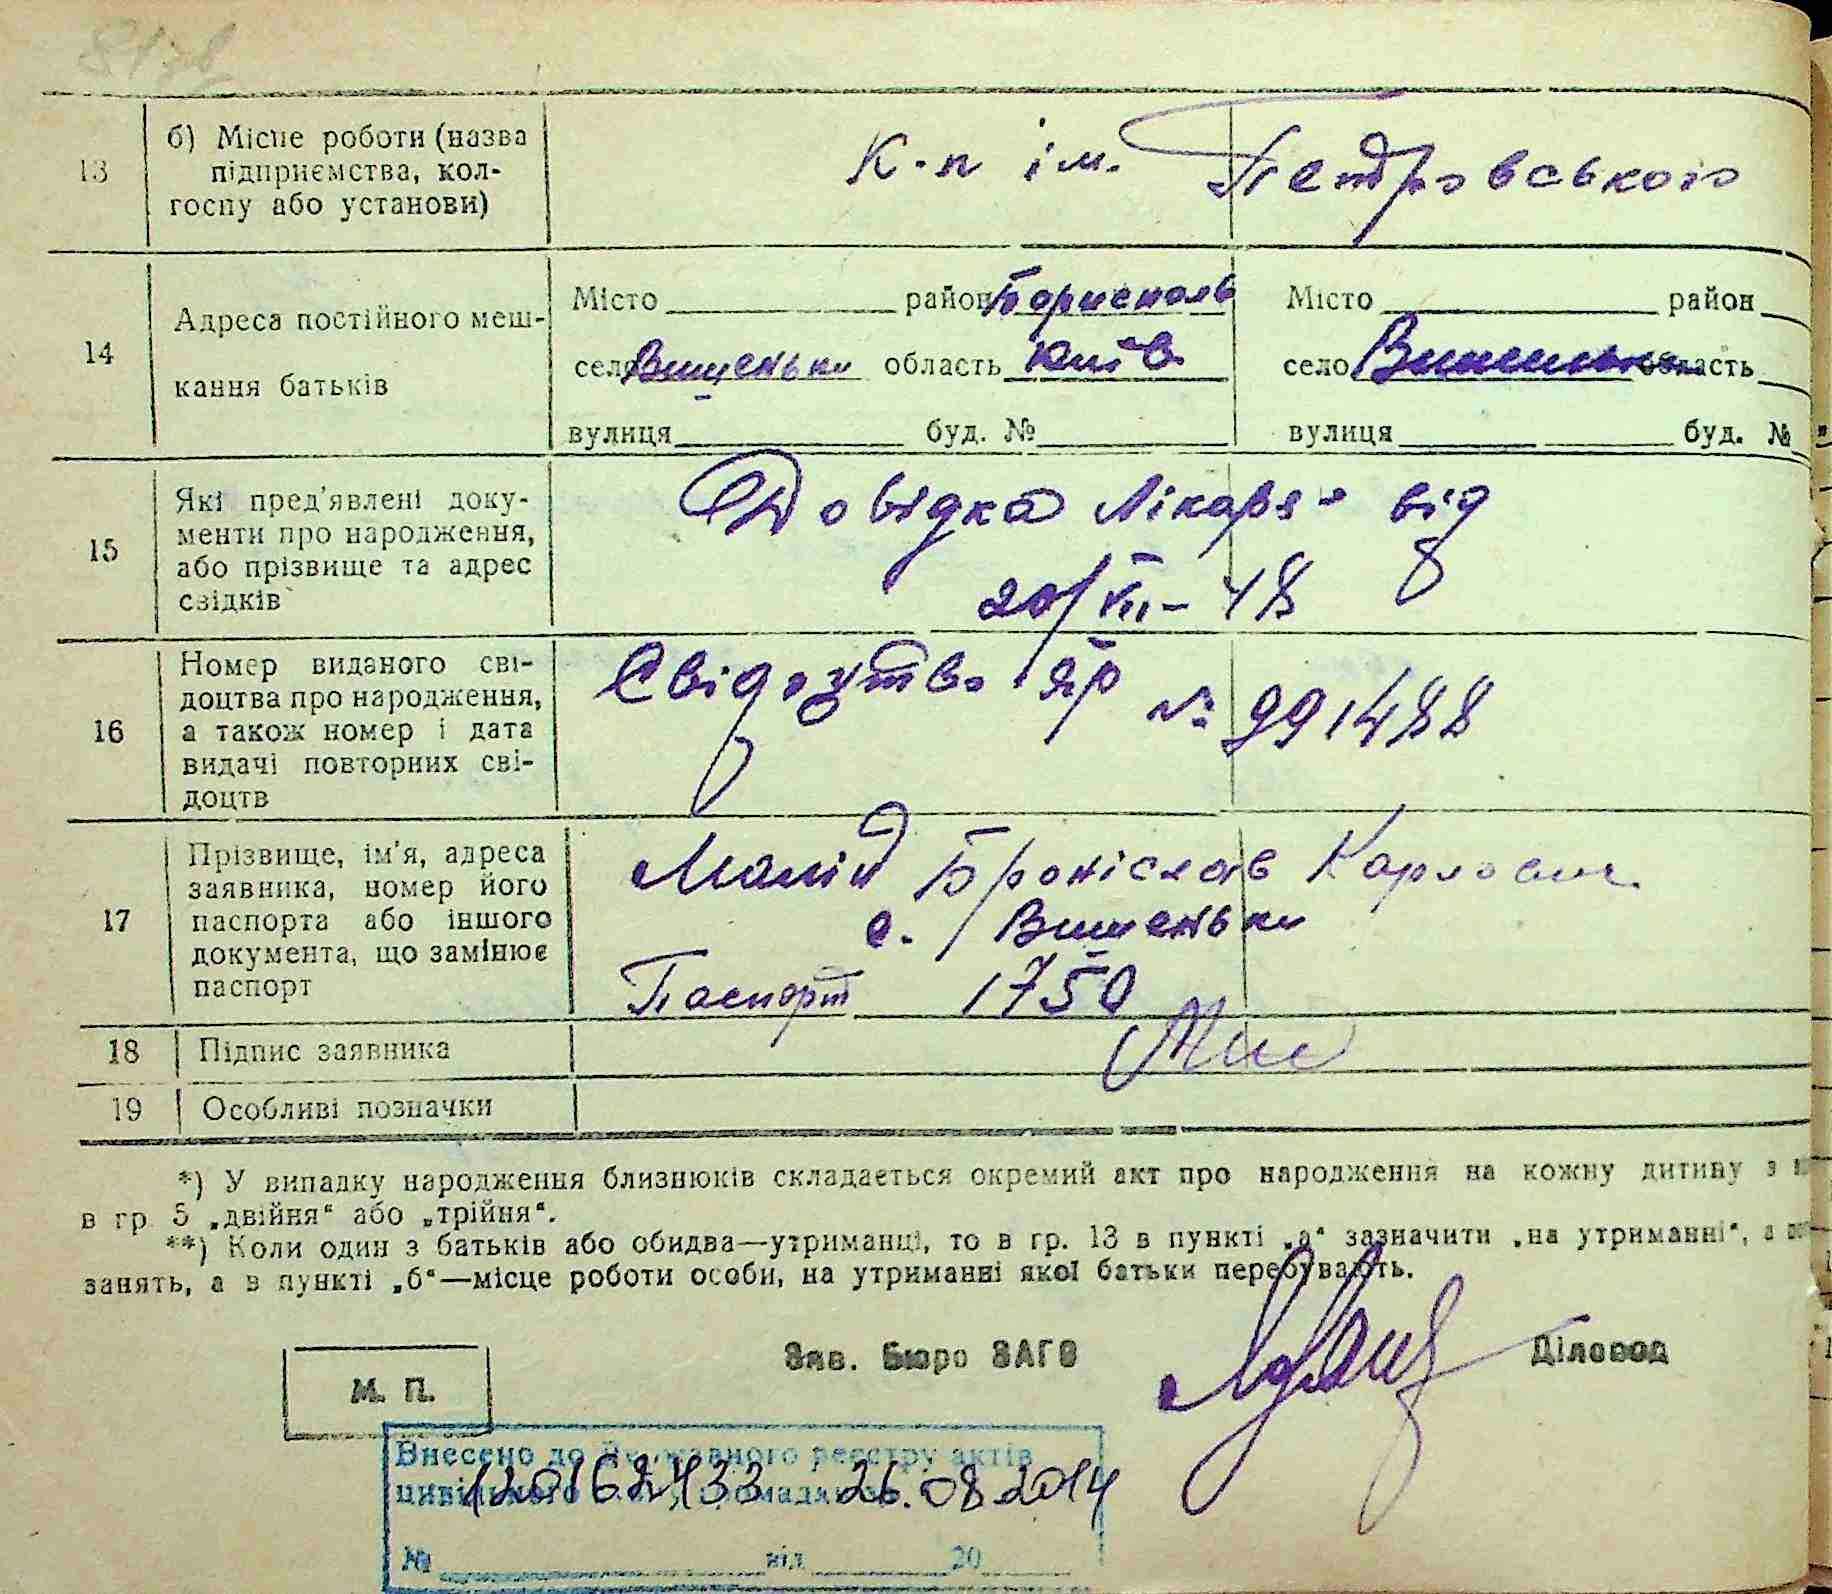 13 б) Місце роботи (назва
підприємства, кол-
госпу або установи)
К-п ім. Петровського
14 Адреса постійного меш-
кання батьків
Місто район Бориспол
село Вишеньки область Київ
вулиця буд. №
Місто район
село Вишеньки область
вулиця буд. №
15 Які пред'явлені доку-
менти про народження,
або прізвище та адрес
свідків
Довідка лікаря від
20/VII-48
16 Номер виданого сві-
доцтва про народження,
а також номер і дата
видачі повторних сві-
доцтв
Свідоцтво ЯР № 991488
17 Прізвище, ім'я, адреса
заявника, номер його
паспорта або іншого
документа, що замінює
паспорт
Броніслав
с. Вишеньки
Паспорт 1750
18 Підпис заявника
19 Особливі позначки
*) У випадку народження близнюків складається окремий акт про народження на кожну дитину з
в гр 5 „двійня“ або „трійня“.
**) Коли один з батьків або обидва—утриманці, то в гр. 13 в пункті „а“ зазначити „на утриманні“, а
занять, а в пункті „б“—місце роботи особи, на утриманні якої батьки перебувають.
Зав. Бюро ЗАГС Діловод
М. П.
Внесено до Державного реєстру актів
цивільного стану громадян
120162433 26.08.2014
№ від 20